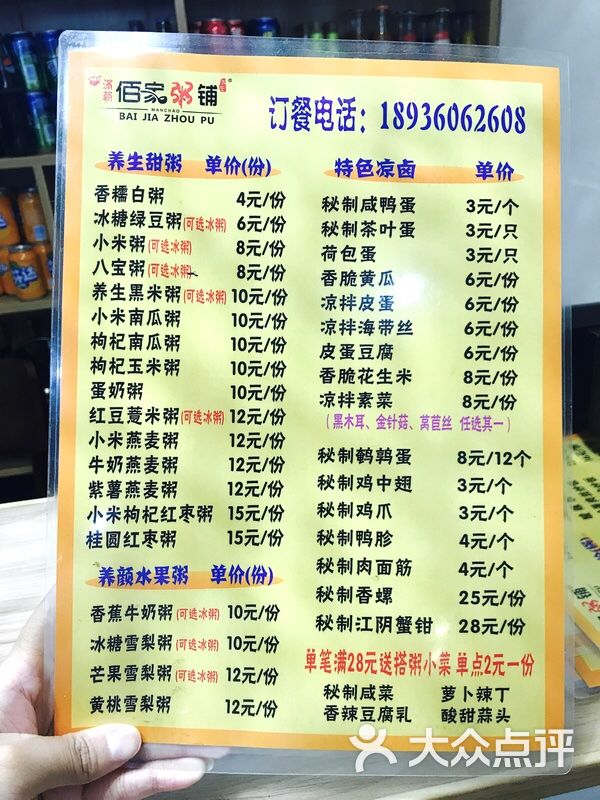 满朝 佰家粥铺
MANCHAO
BAI JIA ZHOU PU
订餐电话：18936062608
养生甜粥 单价(份)
香糯白粥 4元/份
冰糖绿豆粥(可选冰粥) 6元/份
小米粥(可选冰粥) 8元/份
八宝粥(可选冰粥) 8元/份
养生黑米粥(可选冰粥) 10元/份
小米南瓜粥 10元/份
枸杞南瓜粥 10元/份
枸杞玉米粥 10元/份
蛋奶粥 10元/份
红豆薏米粥(可选冰粥) 12元/份
小米燕麦粥 12元/份
牛奶燕麦粥 12元/份
紫薯燕麦粥 12元/份
小米枸杞红枣粥 15元/份
桂圆红枣粥 15元/份
养颜水果粥 单价(份)
香蕉牛奶粥(可选冰粥) 10元/份
冰糖雪梨粥(可选冰粥) 10元/份
芒果雪梨粥(可选冰粥) 12元/份
黄桃雪梨粥 12元/份
特色凉卤 单价
秘制咸鸭蛋 3元/个
秘制茶叶蛋 3元/只
荷包蛋 3元/只
香脆黄瓜 6元/份
凉拌皮蛋 6元/份
凉拌海带丝 6元/份
皮蛋豆腐 6元/份
香脆花生米 8元/份
凉拌素菜 8元/份
(黑木耳、金针菇、莴苣丝 任选其一)
秘制鹌鹑蛋 8元/12个
秘制鸡中翅 3元/个
秘制鸡爪 3元/个
秘制鸭胗 4元/个
秘制肉面筋 4元/个
秘制香螺 25元/份
秘制江阴蟹钳 28元/份
单笔满28元送搭粥小菜 单点2元一份
秘制咸菜 萝卜辣丁
香辣豆腐乳 酸甜蒜头
大众点评